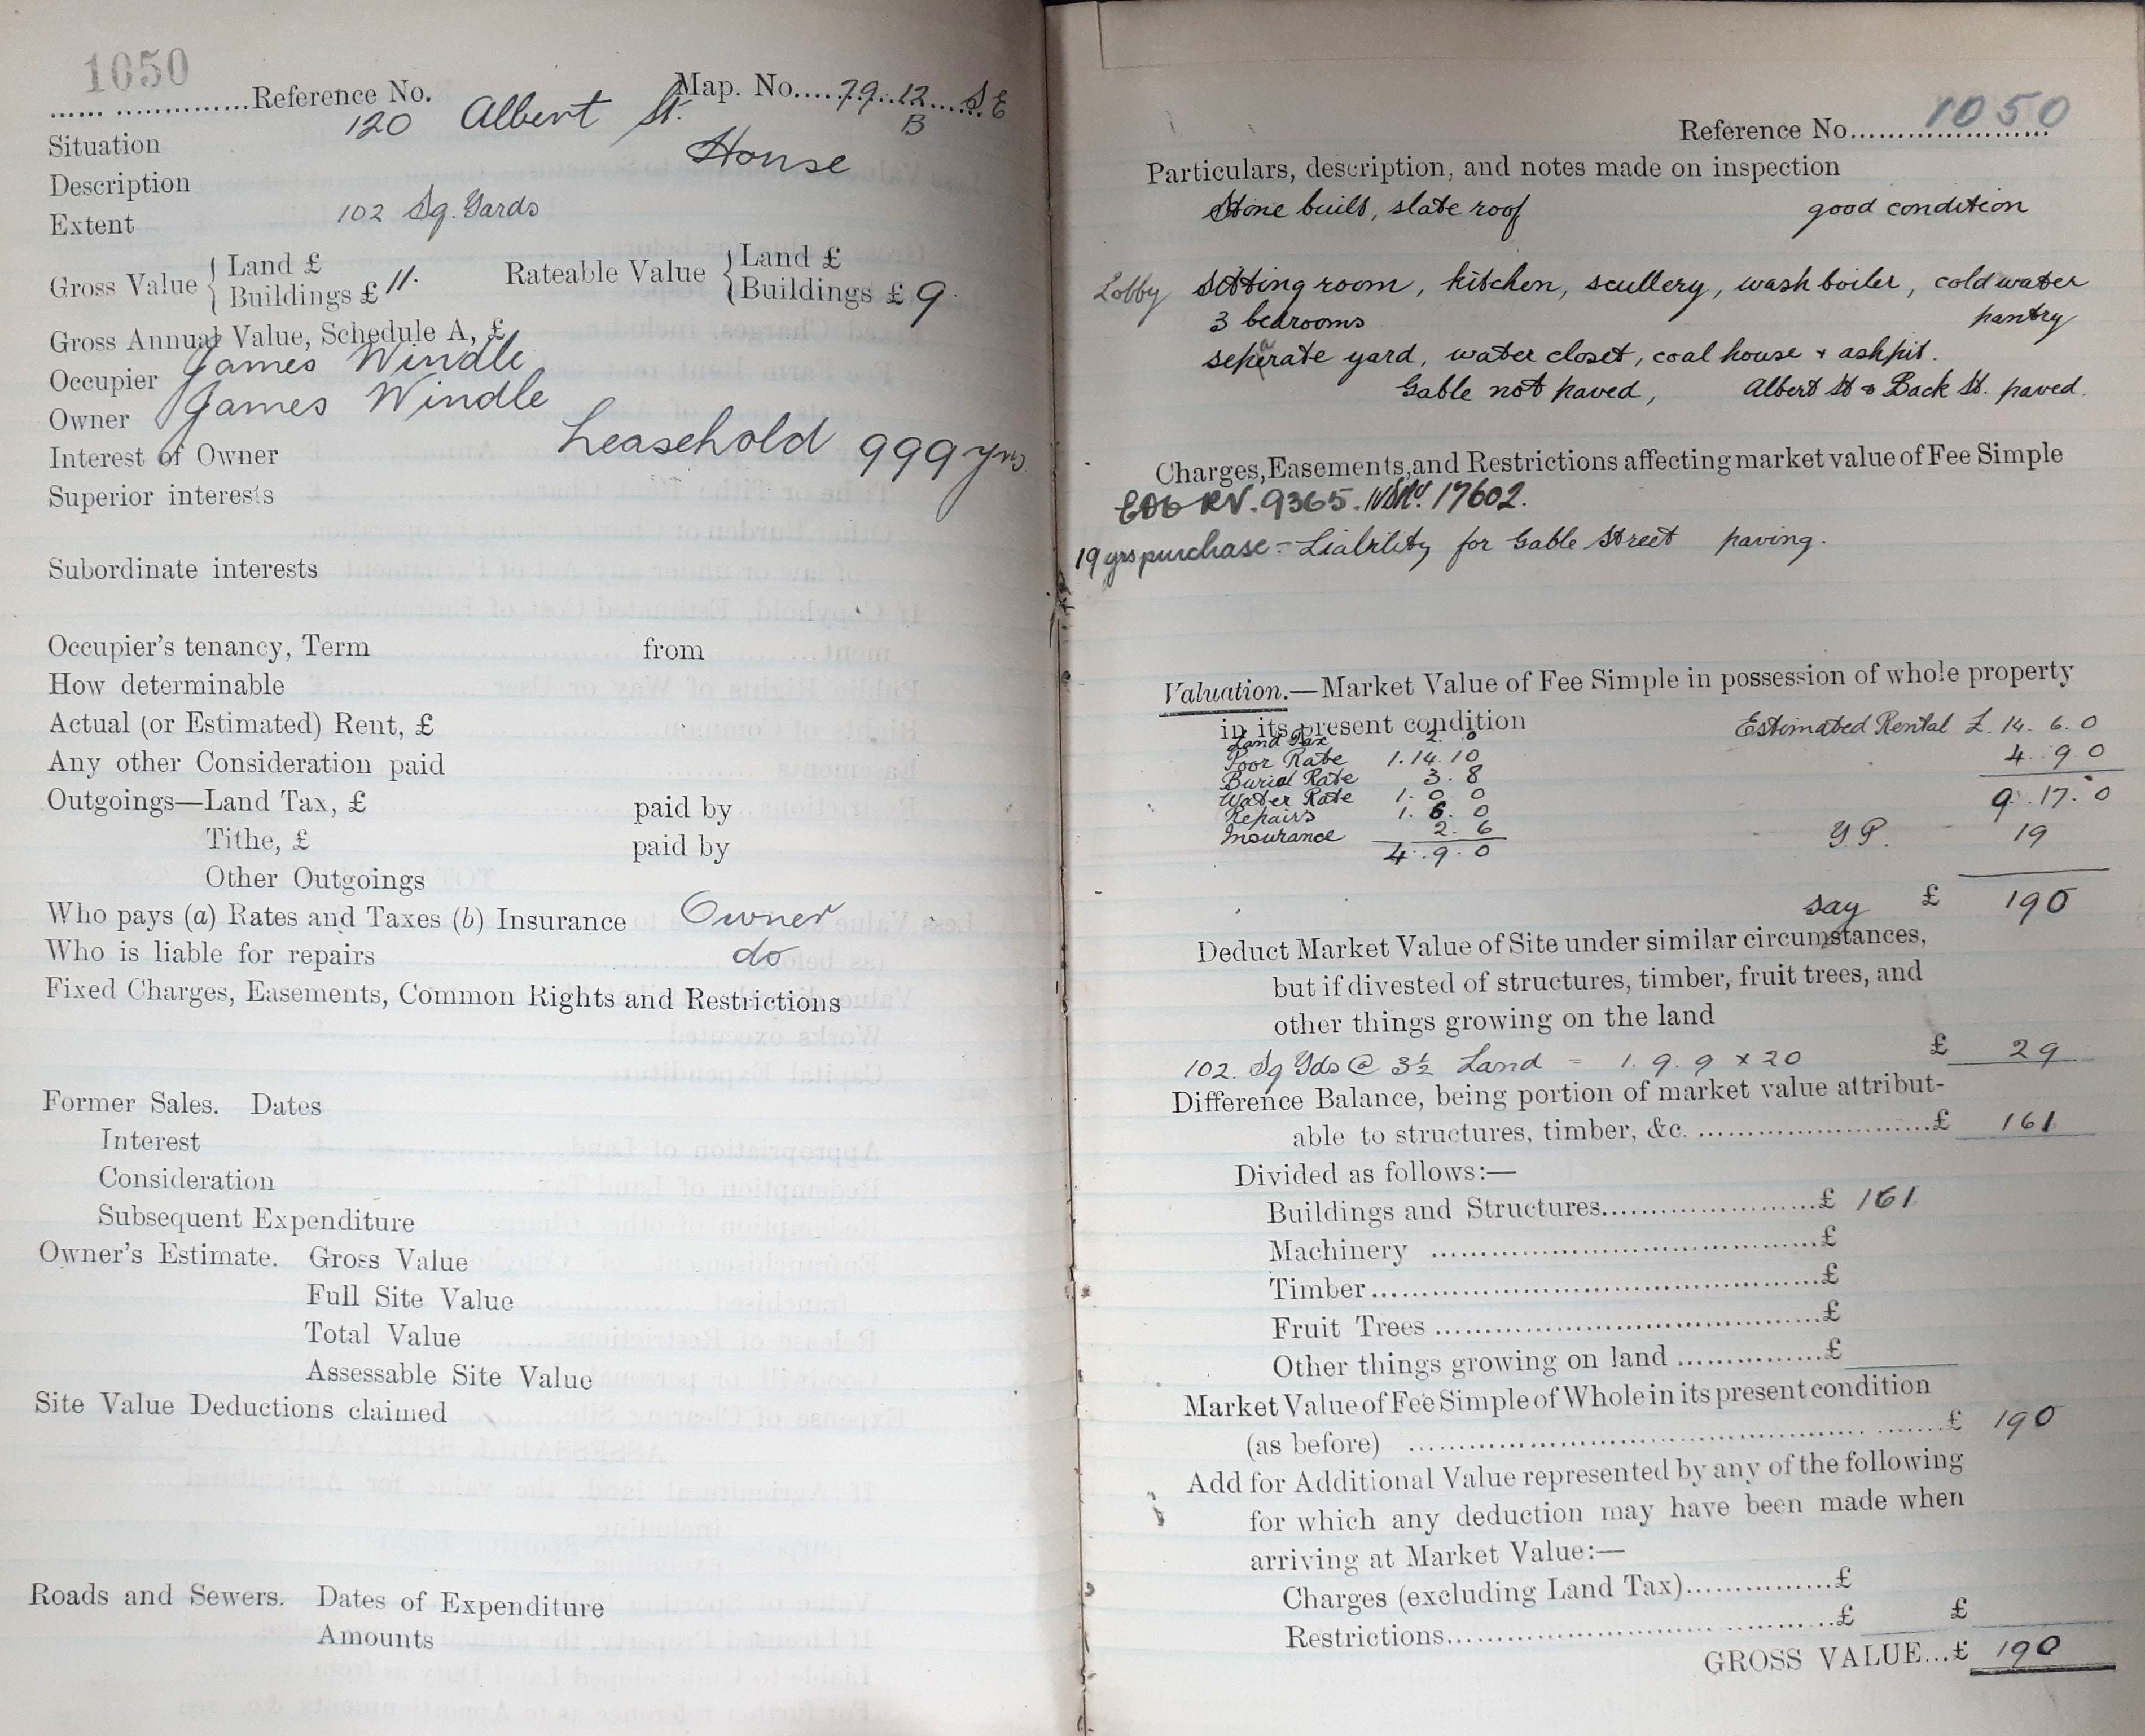 1050
Reference No. Map. No. 79.12 S E
120 Albert St. B
Situation
House
Description
Extent 102 Sq. Yards
Gross Value { Land £ Rateable Value { Land £
Buildings £ 11. Buildings £ 9.
Gross Annual Value, Schedule A, £
Occupier James Windle
Owner James Windle
Interest of Owner Leasehold 999 yrs
Superior interests
Subordinate interests
Occupier's tenancy, Term from
How determinable
Actual (or Estimated) Rent, £
Any other Consideration paid
Outgoings—Land Tax, £ paid by
Tithe, £ paid by
Other Outgoings
Who pays (a) Rates and Taxes (b) Insurance Owner
Who is liable for repairs do
Fixed Charges, Easements, Common Rights and Restrictions
Former Sales. Dates
Interest
Consideration
Subsequent Expenditure
Owner's Estimate. Gross Value
Full Site Value
Total Value
Assessable Site Value
Site Value Deductions claimed
Roads and Sewers. Dates of Expenditure
Amounts
Reference No. 1050
Particulars, description, and notes made on inspection
Stone built, slate roof good condition
Lobby Sitting room, kitchen, scullery, wash boiler, cold water
3 bedrooms pantry
seperate yard, water closet, coal house + ashpit.
Gable not paved, Albert St & Back St. paved.
Charges, Easements, and Restrictions affecting market value of Fee Simple
RV. 9365. 17602.
19 yrs purchase - Liability for Gable Street paving.
Valuation.—Market Value of Fee Simple in possession of whole property
in its present condition Estimated Rental £ 14. 6. 0
Land Tax 2. 0
Poor Rate 1. 14. 10 4. 9. 0
Burial Rate 3. 8
Water Rate 1. 0. 0 9. 17. 0
Repairs 1. 6. 0
Insurance 2. 6 Y.P. 19
4. 9. 0
say £ 190
Deduct Market Value of Site under similar circumstances,
but if divested of structures, timber, fruit trees, and
other things growing on the land
102. Sq Yds @ 3½ Land = 1. 9. 9 x 20 £ 29
Difference Balance, being portion of market value attribut-
able to structures, timber, &c. £ 161
Divided as follows:—
Buildings and Structures £ 161
Machinery £
Timber £
Fruit Trees £
Other things growing on land £
Market Value of Fee Simple of Whole in its present condition
(as before) £ 190
Add for Additional Value represented by any of the following
for which any deduction may have been made when
arriving at Market Value:—
Charges (excluding Land Tax) £
Restrictions £ £
GROSS VALUE...£ 190